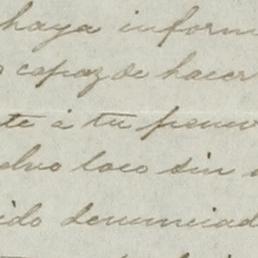 haya inform
capaz de hacer
te á tu
loco sin
ido denunciad